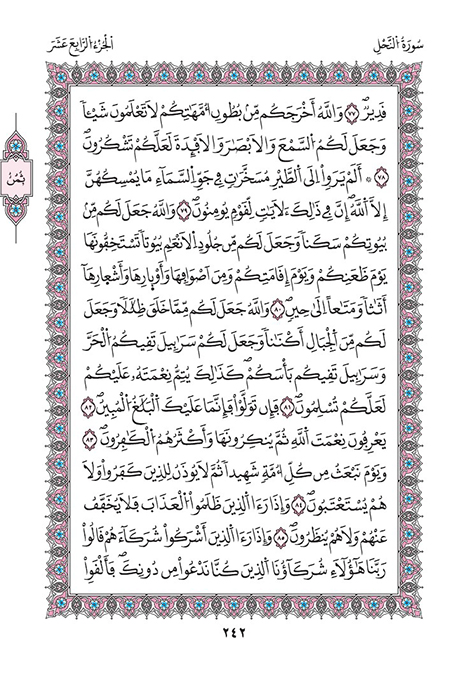 سُورَةُ النَّحْلِ
الجُزْءُ الرَّابِعَ عَشَرَ
قَدِيرٌ ٧٧ وَاللَّهُ أَخْرَجَكُم مِّنۢ بُطُونِ أُمَّهَٰتِكُمْ لَا تَعْلَمُونَ شَيْـًٔا
وَجَعَلَ لَكُمُ السَّمْعَ وَالَابْصَٰرَ وَالَافْـِٕدَةَ لَعَلَّكُمْ تَشْكُرُونَ
٧٨ أَلَمْ يَرَوِاْ اِلَى اَلطَّيْرِ مُسَخَّرَٰتٍ فِي جَوِّ السَّمَآءِ مَا يُمْسِكُهُنَّ
إِلَّا اَللَّهُ إِنَّ فِي ذَٰلِكَ ءَلَايَٰتٍ لِّقَوْمٍ يُومِنُونَ ٧٩ وَاللَّهُ جَعَلَ لَكُم مِّنۢ
بُيُوتِكُمْ سَكَنًا وَجَعَلَ لَكُم مِّن جُلُودِ اِلَانْعَٰمِ بُيُوتًا تَسْتَخِفُّونَهَا
يَوْمَ ظَعَنِكُمْ وَيَوْمَ إِقَامَتِكُمْ وَمِنَ اَصْوَافِهَا وَأَوْبِارِهَا وَأَشْعِارِهَا
أَثَٰثًا وَمَتَٰعًا اِلَىٰ حِينٍ ٨٠ وَاللَّهُ جَعَلَ لَكُم مِّمَّا خَلَقَ ظِلَٰلًا وَجَعَلَ
لَكُم مِّنَ اَلْجِبَالِ أَكْنَٰنًا وَجَعَلَ لَكُمْ سَرَٰبِيلَ تَقِيكُمُ الْحَرَّ
وَسَرَٰبِيلَ تَقِيكُم بَأْسَكُمْ كَذَٰلِكَ يُتِمُّ نِعْمَتَهُۥ عَلَيْكُمْ
لَعَلَّكُمْ تُسْلِمُونَ ٨١ فَإِن تَوَلَّوْاْ فَإِنَّمَا عَلَيْكَ اَلْبَلَٰغُ الْمُبِينُ ٨٢
يَعْرِفُونَ نِعْمَتَ اَللَّهِ ثُمَّ يُنكِرُونَهَا وَأَكْثَرُهُمُ الْكَٰفِرُونَ ٨٣
وَيَوْمَ نَبْعَثُ مِن كُلِّ أُمَّةٍ شَهِيدًا ثُمَّ لَا يُوذَنُ لِلَّذِينَ كَفَرُواْ وَلَا
هُمْ يُسْتَعْتَبُونَ ٨٤ وَإِذَا رَءَا اَلَّذِينَ ظَلَمُواْ الْعَذَابَ فَلَا يُخَفَّفُ
عَنْهُمْ وَلَا هُمْ يُنظَرُونَ ٨٥ وَإِذَا رَءَا اَلَّذِينَ أَشْرَكُواْ شُرَكَآءَهُمْ قَالُواْ
رَبَّنَا هَٰٓؤُلَآءِ شُرَكَآؤُنَا اَلَّذِينَ كُنَّا نَدْعُواْ مِن دُونِكَ فَأَلْقَوِاْ
ثُمُنُ
٢٤٢